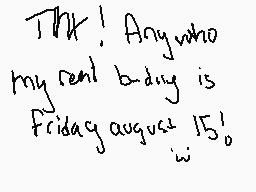 Tht! Anywho
my real bday is
friday august 15!
'w'